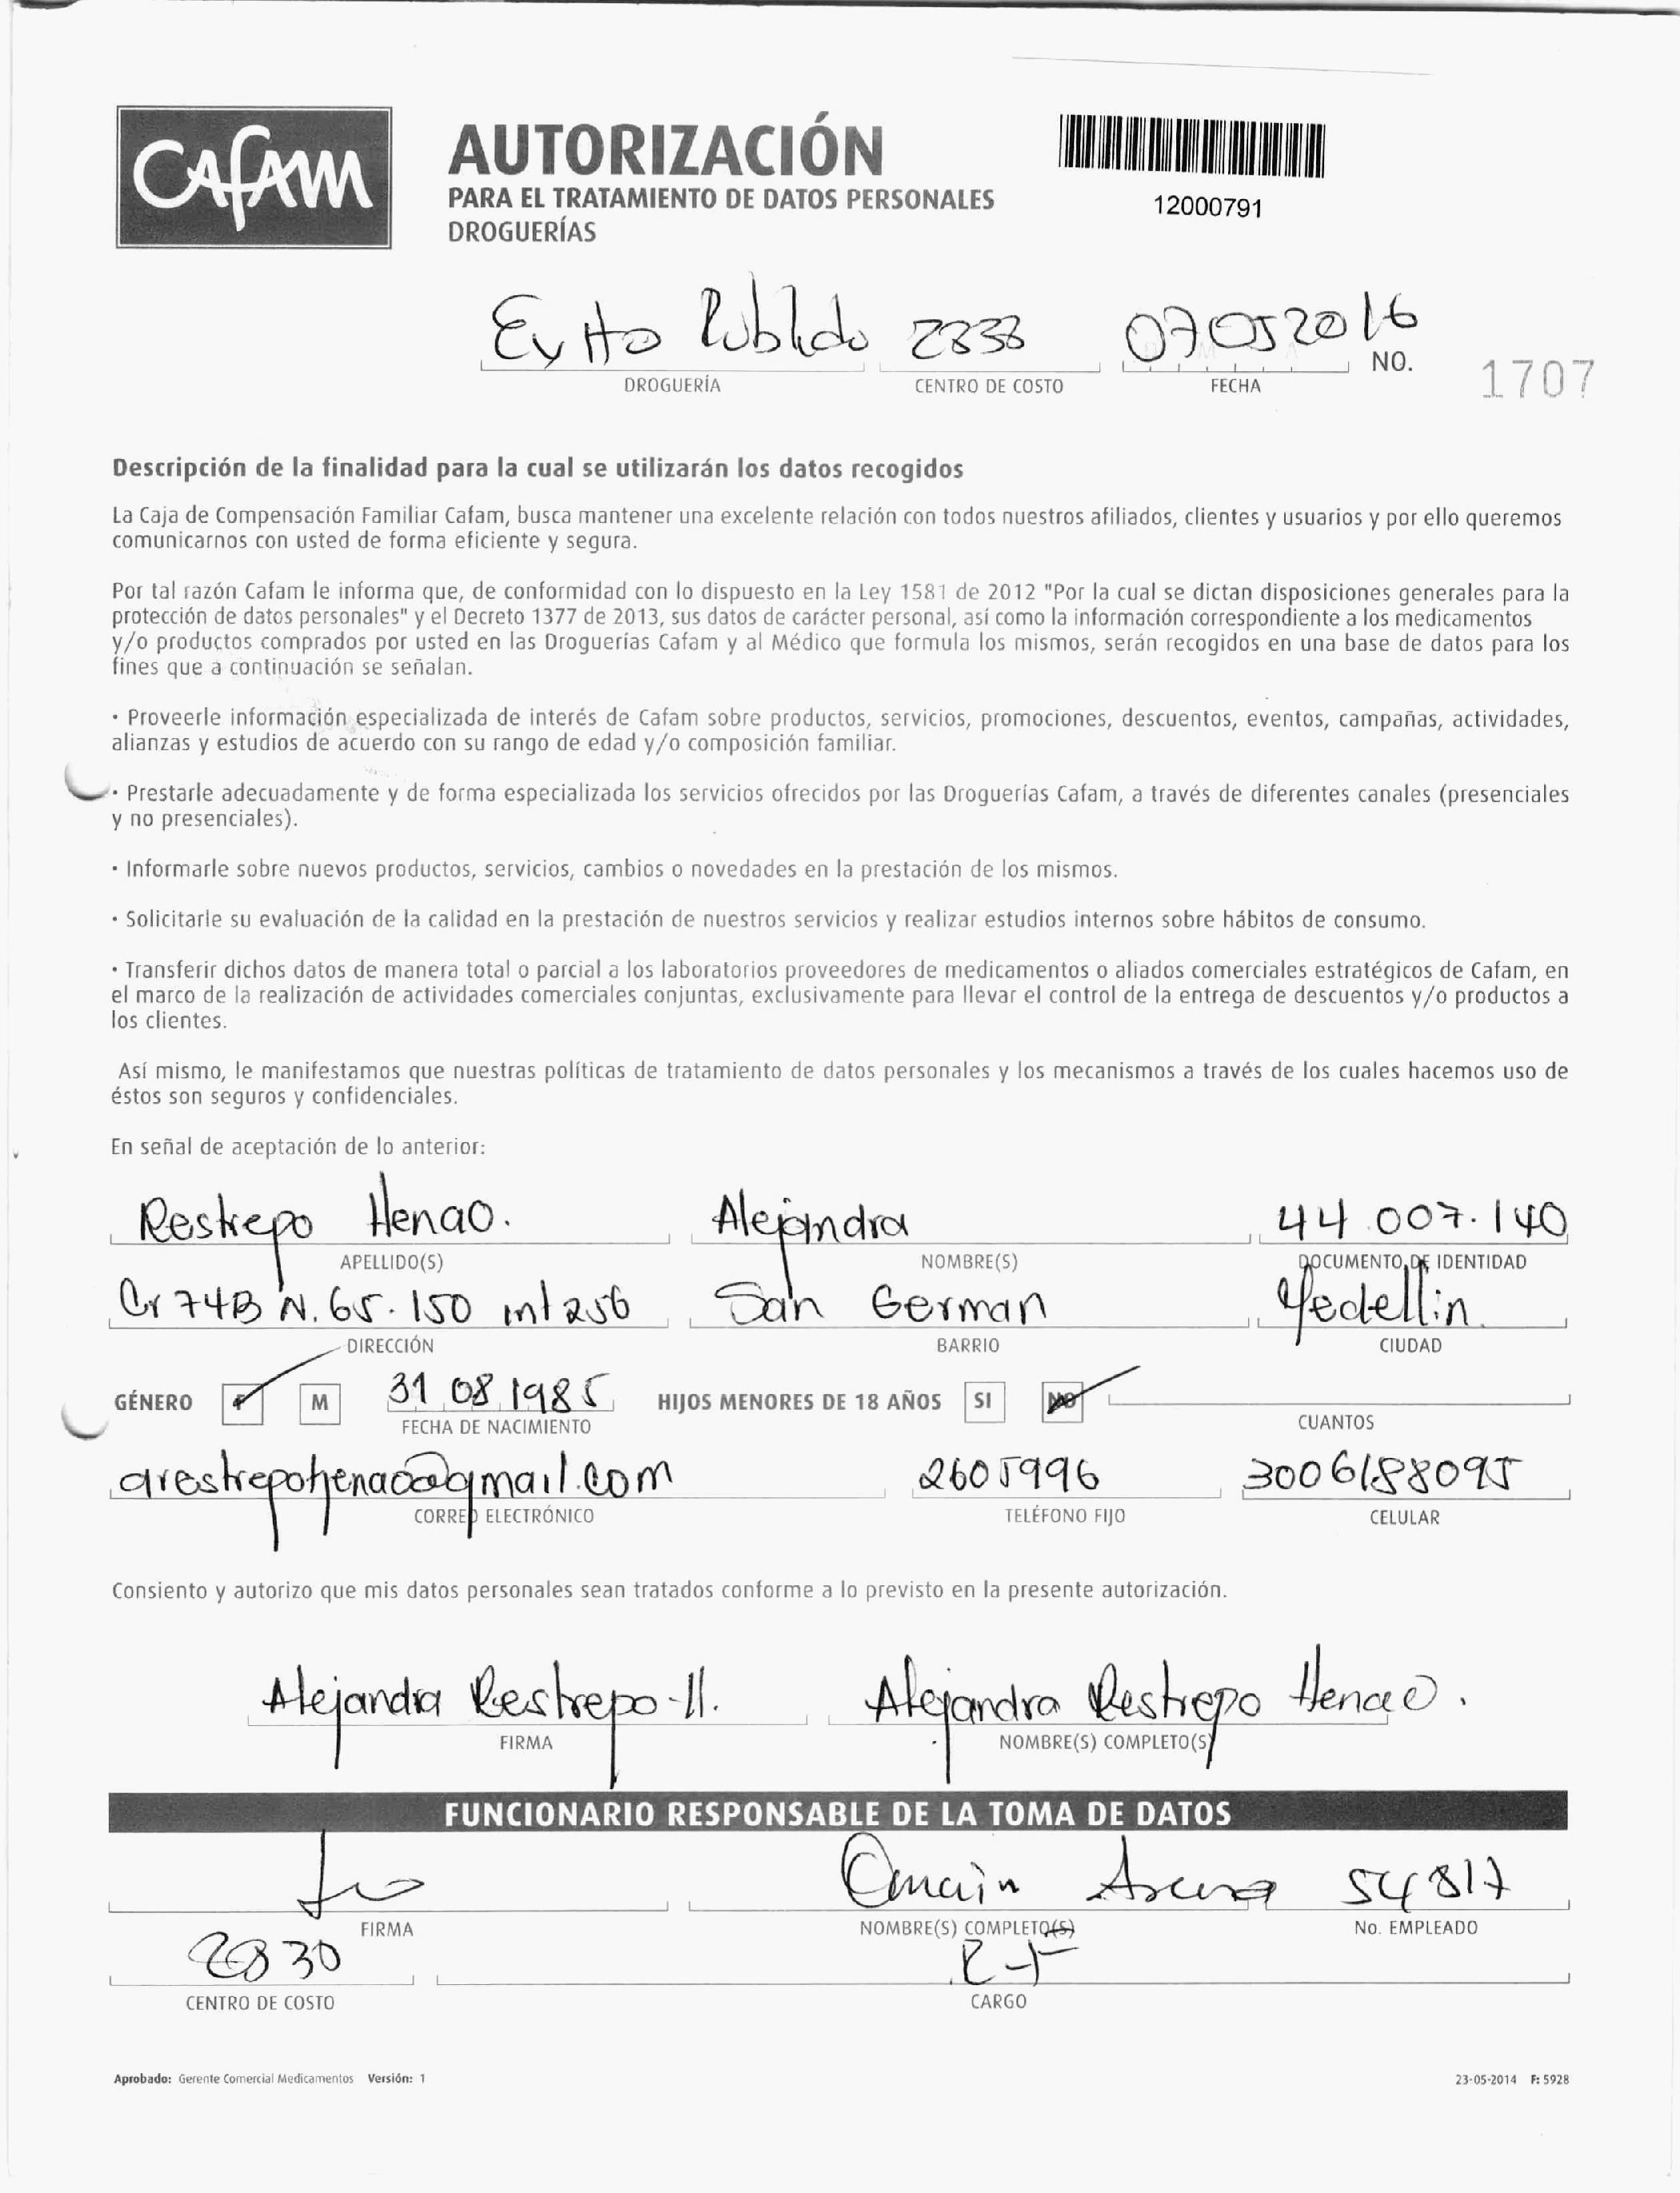 CAFAM
AUTORIZACIÓN
PARA EL TRATAMIENTO DE DATOS PERSONALES
DROGUERÍAS
12000791
Exito Poblado 2838 07052016
DROGUERÍA CENTRO DE COSTO FECHA NO. 1707
Descripción de la finalidad para la cual se utilizarán los datos recogidos
La Caja de Compensación Familiar Cafam, busca mantener una excelente relación con todos nuestros afiliados, clientes y usuarios y por ello queremos
comunicarnos con usted de forma eficiente y segura.
Por tal razón Cafam le informa que, de conformidad con lo dispuesto en la Ley 1581 de 2012 "Por la cual se dictan disposiciones generales para la
protección de datos personales" y el Decreto 1377 de 2013, sus datos de carácter personal, así como la información correspondiente a los medicamentos
y/o productos comprados por usted en las Droguerías Cafam y al Médico que formula los mismos, serán recogidos en una base de datos para los
fines que a continuación se señalan.
· Proveerle información especializada de interés de Cafam sobre productos, servicios, promociones, descuentos, eventos, campañas, actividades,
alianzas y estudios de acuerdo con su rango de edad y/o composición familiar.
· Prestarle adecuadamente y de forma especializada los servicios ofrecidos por las Droguerías Cafam, a través de diferentes canales (presenciales
y no presenciales).
· Informarle sobre nuevos productos, servicios, cambios o novedades en la prestación de los mismos.
· Solicitarle su evaluación de la calidad en la prestación de nuestros servicios y realizar estudios internos sobre hábitos de consumo.
· Transferir dichos datos de manera total o parcial a los laboratorios proveedores de medicamentos o aliados comerciales estratégicos de Cafam, en
el marco de la realización de actividades comerciales conjuntas, exclusivamente para llevar el control de la entrega de descuentos y/o productos a
los clientes.
Así mismo, le manifestamos que nuestras políticas de tratamiento de datos personales y los mecanismos a través de los cuales hacemos uso de
éstos son seguros y confidenciales.
En señal de aceptación de lo anterior:
Restrepo Henao. Alejandra 44.007.140
APELLIDO(S) NOMBRE(S) DOCUMENTO DE IDENTIDAD
Cr 74B N. 65. 150 int 256 San German Medellin
DIRECCIÓN BARRIO CIUDAD
GÉNERO F M 31 08 1985 HIJOS MENORES DE 18 AÑOS SI NO
FECHA DE NACIMIENTO CUANTOS
arestrepohenao@gmail.com 2605996 3006188095
CORREO ELECTRÓNICO TELÉFONO FIJO CELULAR
Consiento y autorizo que mis datos personales sean tratados conforme a lo previsto en la presente autorización.
Alejandra Restrepo H. Alejandra Restrepo Henao.
FIRMA NOMBRE(S) COMPLETO(S)
FUNCIONARIO RESPONSABLE DE LA TOMA DE DATOS
54817
FIRMA NOMBRE(S) COMPLETO(S) No. EMPLEADO
2830
CENTRO DE COSTO CARGO
Aprobado: Gerente Comercial Medicamentos Versión: 1 23-05-2014 F: 5928